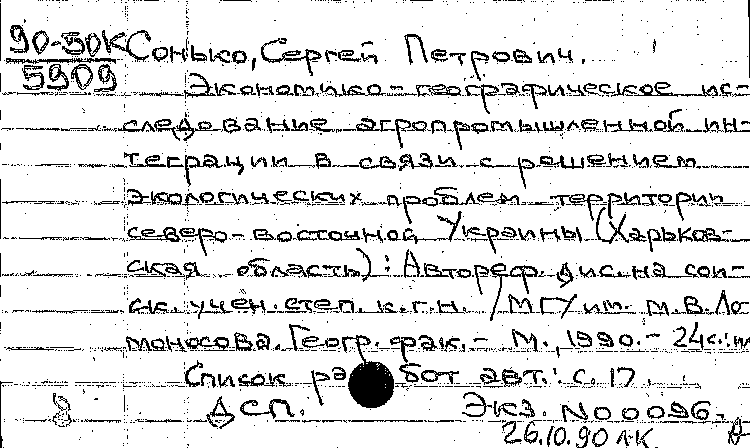 90-50К Сонько, Сергей Петрович.
5909
Экономико-географическое ис-
следование агропромышленной ин-
теграции в связи с решением
экологических проблем территории
северо-восточной Украины (Харьков-
ская область): Автореф. дис. на сои-
ск. учен. степ. к.г.н. / МГУ им. М.В. Ло-
моносова. Геогр. фак. - М., 1990. - 24с.:
Список работ авт.: с. 17.
ДСП. Экз. № 0096.
26.10.90 ЛК